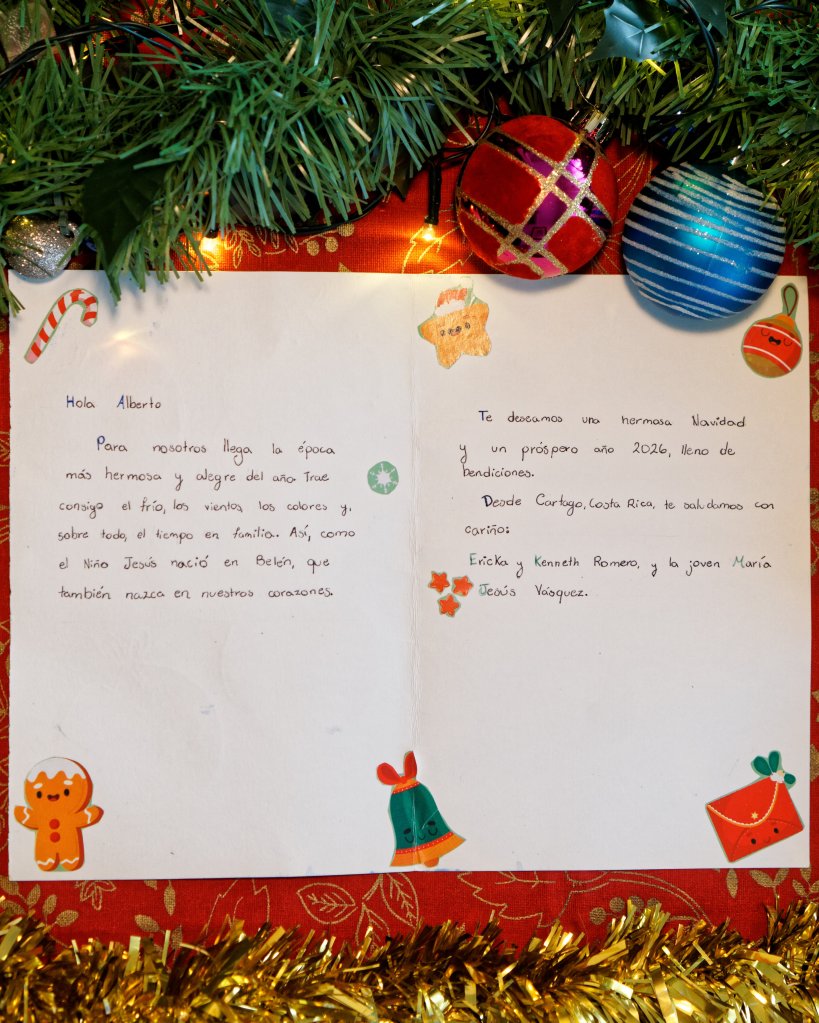 Hola Alberto
Para nosotros llega la época
más hermosa y alegre del año. Trae
consigo el frío, los vientos, los colores y,
sobre todo, el tiempo en familia. Así, como
el Niño Jesús nació en Belén, que
también nazca en nuestros corazones.
Te deseamos una hermosa Navidad
y un próspero año 2026, lleno de
bendiciones.
Desde Cartago, Costa Rica, te saludamos con
cariño:
Ericka y Kenneth Romero, y la joven María
Jesús Vásquez.